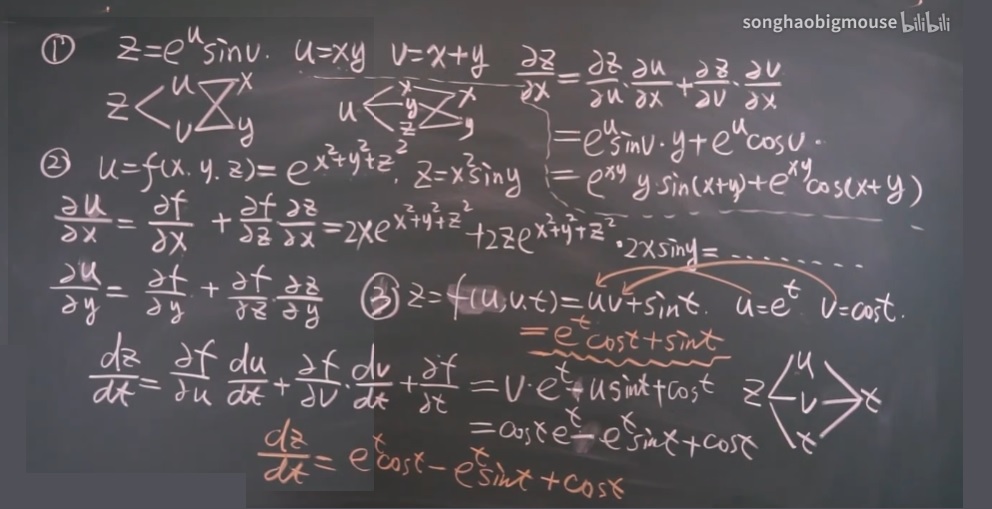 songhaobigmouse bilibili
① z=e^u sinv. u=xy v=x+y ∂z/∂x = ∂z/∂u · ∂u/∂x + ∂z/∂v · ∂v/∂x
z u v x y
u x y z x y
= e^u sinv · y + e^u cosv ·
= e^xy y sin(x+y) + e^xy cos(x+y)
② u=f(x.y.z)= e^x²+y²+z². z=x²siny
∂u/∂x = ∂f/∂x + ∂f/∂z ∂z/∂x = 2xe^x²+y²+z² + 2ze^x²+y²+z² · 2xsiny = ........
∂u/∂y = ∂f/∂y + ∂f/∂z ∂z/∂y
③ z=f(u,v.t)=uv+sint. u=e^t v=cost.
= e^t cost+sint
dz/dt = ∂f/∂u du/dt + ∂f/∂v · dv/dt + ∂f/∂t = v·e^t - usint+cost
z u v t t
= cost e^t - e^t sint + cost
dz/dt = e^t cost - e^t sint + cost